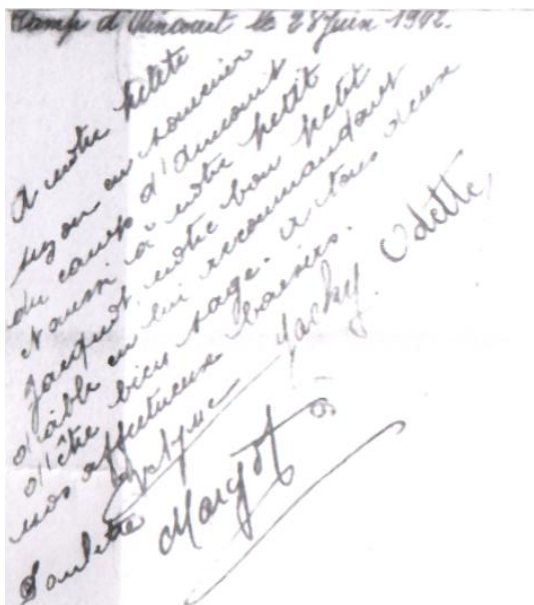 Camp d'Aincourt le 28 Juin 1942.
A notre petite
Suzon en souvenir
du camp d'aincourt
et aussi à notre petit
Jacquot, notre bon petit
diable en lui recommandant
d'être bien sage. a tous deux
nos affectueux baisers.
Jacky Odette,
Paulette Margot